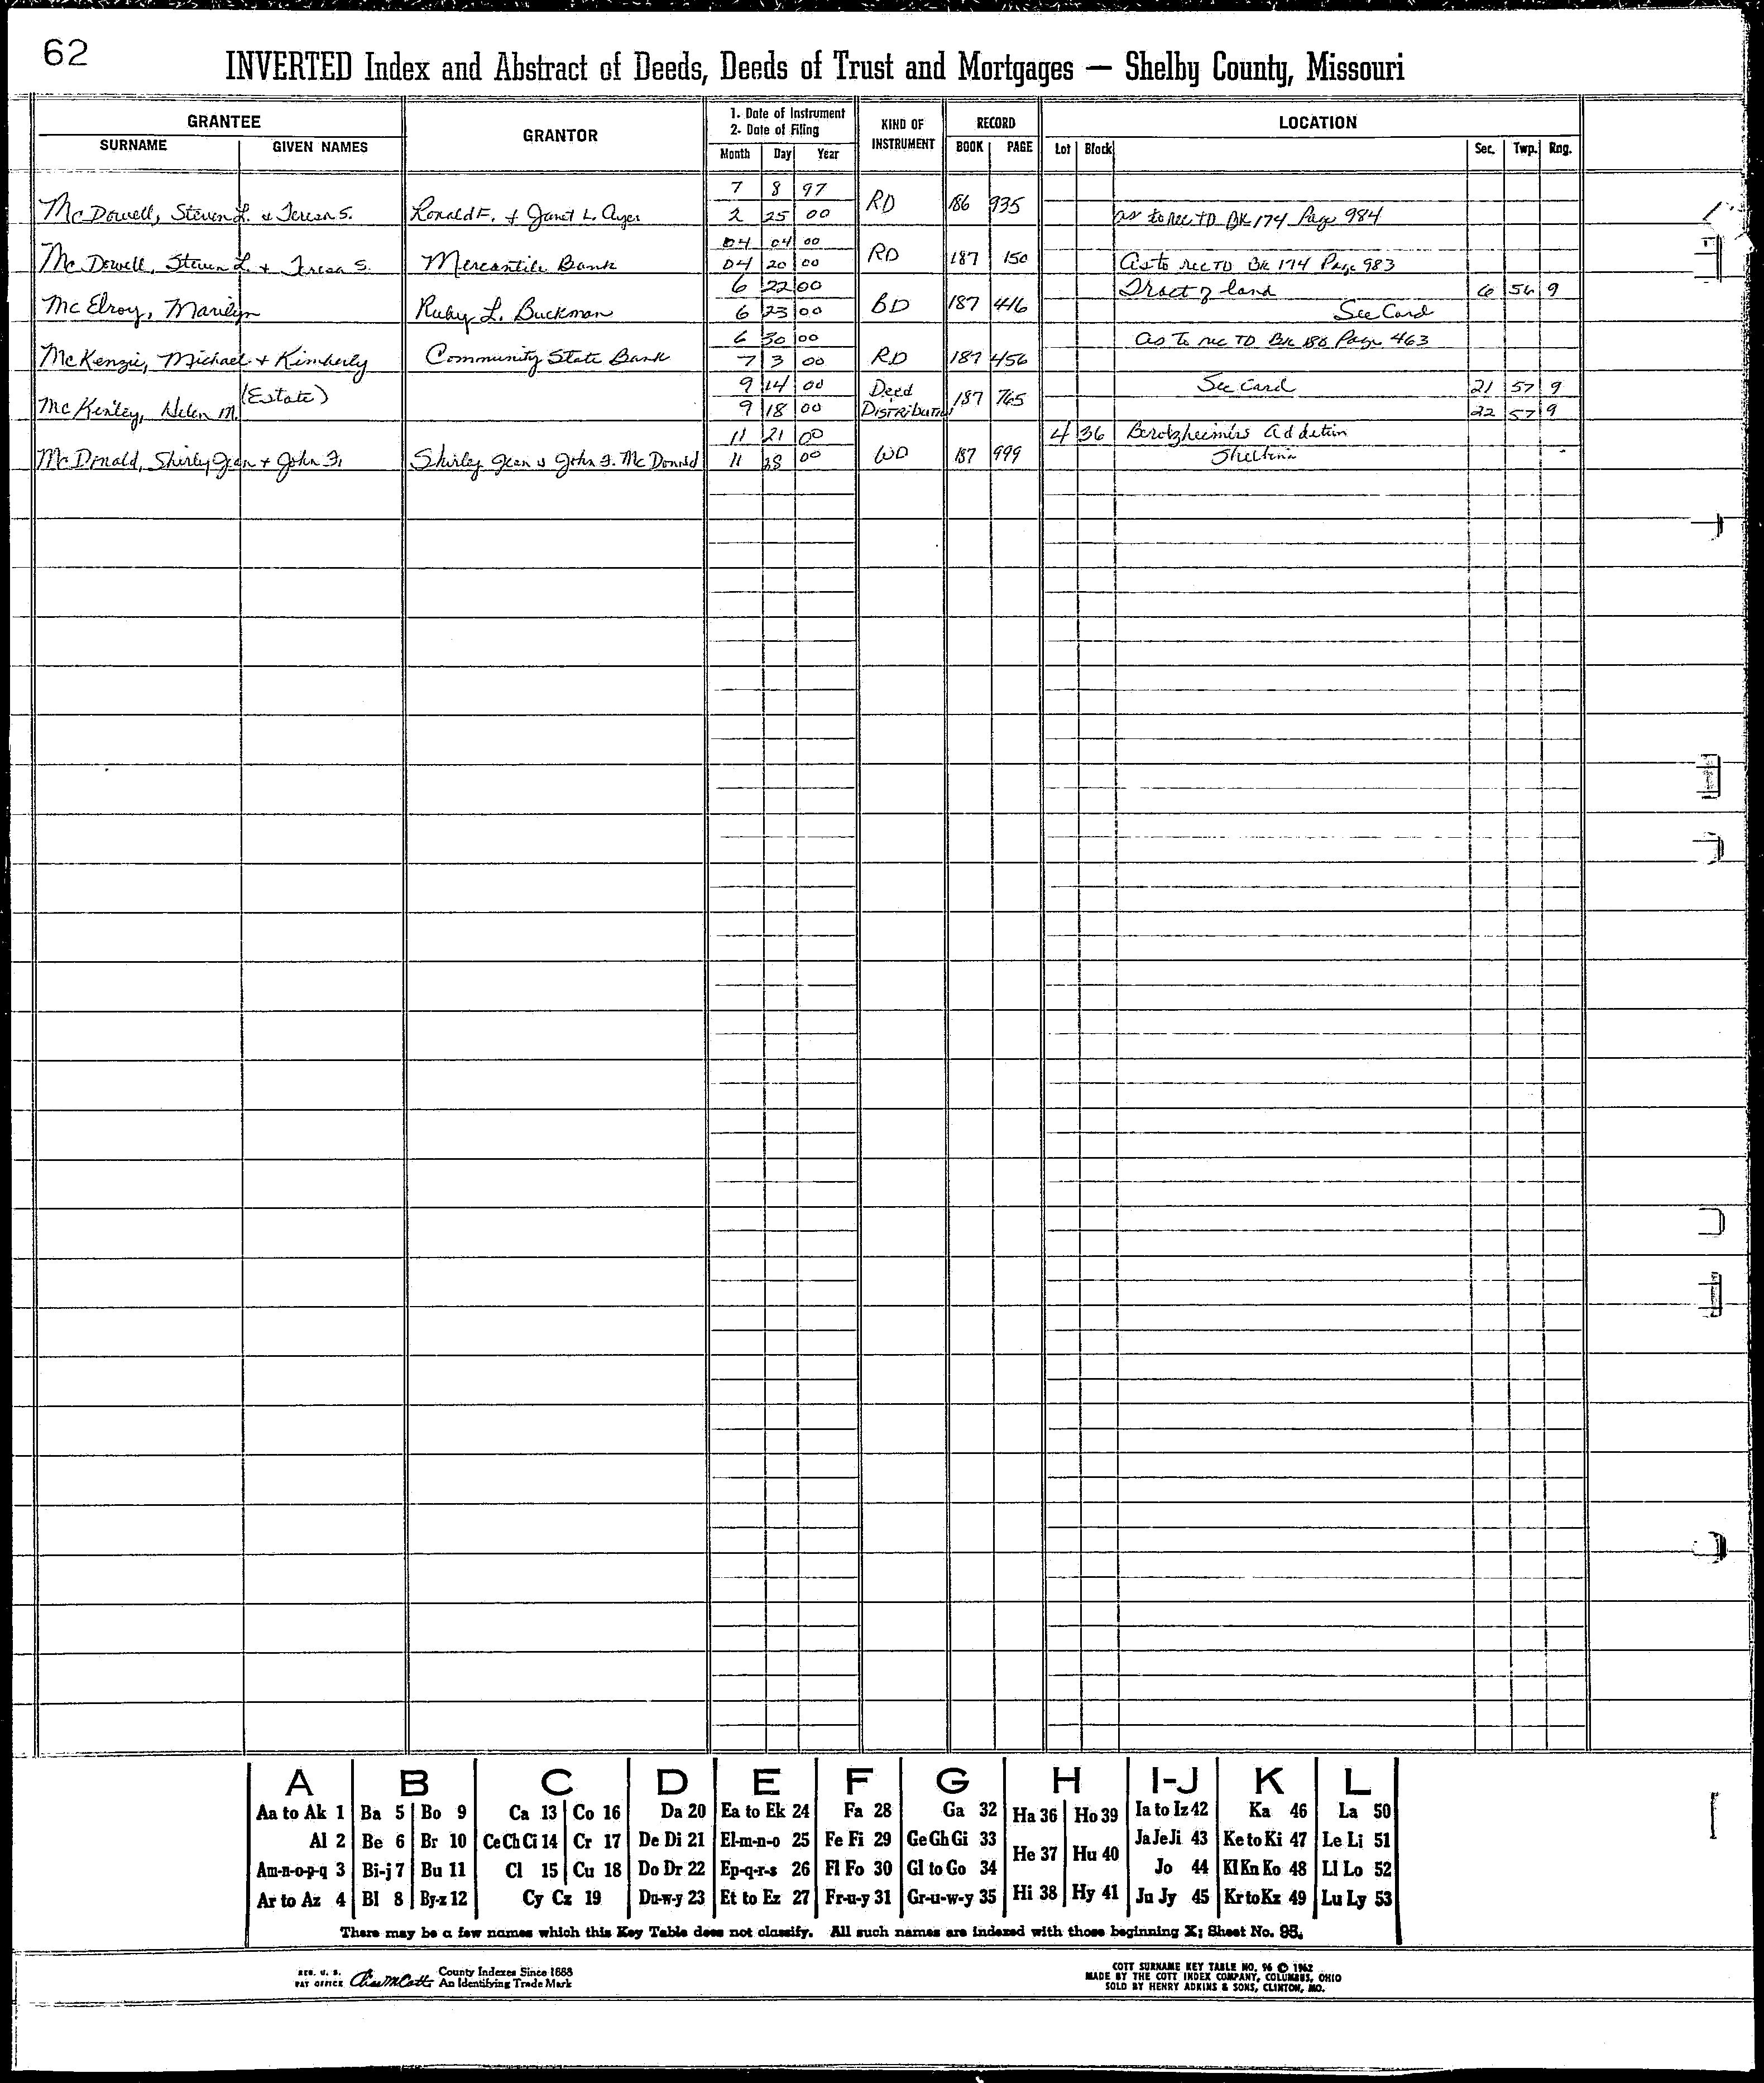 62
INVERTED Index and Abstract of Deeds, Deeds of Trust and Mortgages — Shelby County, Missouri
GRANTEE GRANTOR 1. Date of Instrument 2. Date of Filing KIND OF INSTRUMENT RECORD LOCATION
SURNAME GIVEN NAMES Month Day Year BOOK PAGE Lot Block Sec. Twp. Rng.
7 8 97
McDowell, Steven L. & Teresa S. Ronald F. & Janet L. Ayer 2 25 00 RD 186 935 as to rec TD BK 174 Page 984
04 04 00
McDowell, Steven L. + Teresa S. Mercantile Bank 04 20 00 RD 187 150 As to rec TD BK 174 Page 983
6 22 00 Tract of land 6 56 9
McElroy, Marilyn Ruby L. Buckman 6 23 00 BD 187 416 See Card
6 30 00 as To rec TD BK 186 Page 463
McKenzie, Michael + Kimberly Community State Bank 7 3 00 RD 187 456
(Estate) 9 14 00 Deed See Card 21 57 9
McKenley, Helen M. 9 18 00 Distribution 187 765 22 57 9
11 21 00 4 36 Berolzheimers Addition
McDonald, Shirley Jean + John F. Shirley Jean & John F. McDonald 11 28 00 WD 187 999 Shelbina
A B C D E F G H I-J K L
Aa to Ak 1 Ba 5 Bo 9 Ca 13 Co 16 Da 20 Ea to Ek 24 Fa 28 Ga 32 Ha 36 Ho 39 Ia to Iz 42 Ka 46 La 50
Al 2 Be 6 Br 10 Ce Ch Ci 14 Cr 17 De Di 21 El-m-n-o 25 Fe Fi 29 Ge Gh Gi 33 He 37 Hu 40 Ja Je Ji 43 Ke to Ki 47 Le Li 51
Am-n-o-p-q 3 Bi-j 7 Bu 11 Cl 15 Cu 18 Do Dr 22 Ep-q-r-s 26 Fl Fo 30 Gl to Go 34 Jo 44 Kl Kn Ko 48 Ll Lo 52
Ar to Az 4 Bl 8 By-z 12 Cy Cz 19 Du-w-y 23 Et to Ez 27 Fr-u-y 31 Gr-u-w-y 35 Hi 38 Hy 41 Ju Jy 45 Kr to Kz 49 Lu Ly 53
There may be a few names which this Key Table does not classify. All such names are indexed with those beginning X; Sheet No. 95.
REG. U. S. PAT OFFICE County Indexes Since 1888 An Identifying Trade Mark
COTT SURNAME KEY TABLE NO. 96 © 1962
MADE BY THE COTT INDEX COMPANY, COLUMBUS, OHIO
SOLD BY HENRY ADKINS & SONS, CLINTON, MO.